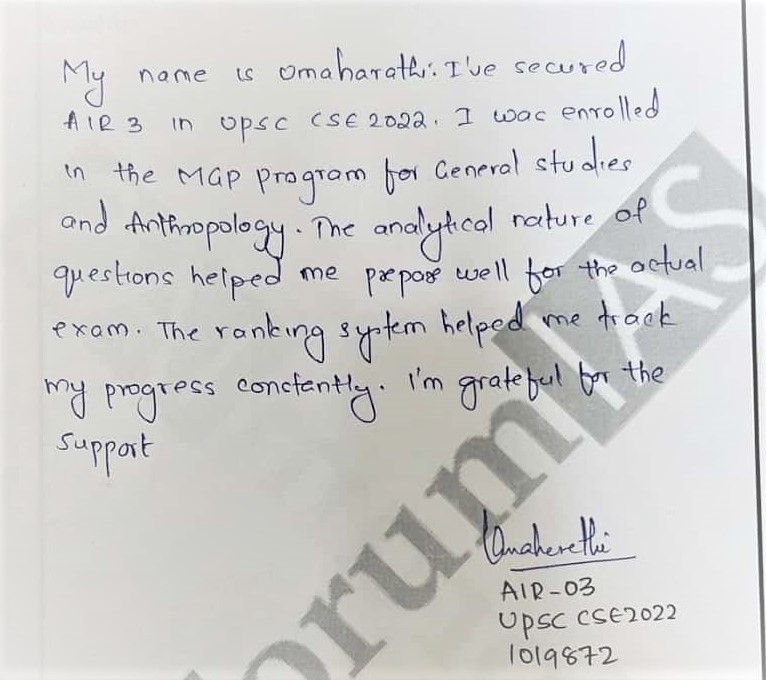 My name is Umaharathi. I've secured
AIR 3 in UPSC CSE 2022. I was enrolled
in the MGP program for General studies
and Anthropology. The analytical nature of
questions helped me prepare well for the actual
exam. The ranking system helped me track
my progress constantly. I'm grateful for the
support
Umaharathi
AIR-03
UPSC CSE2022
1019872
forum IAS